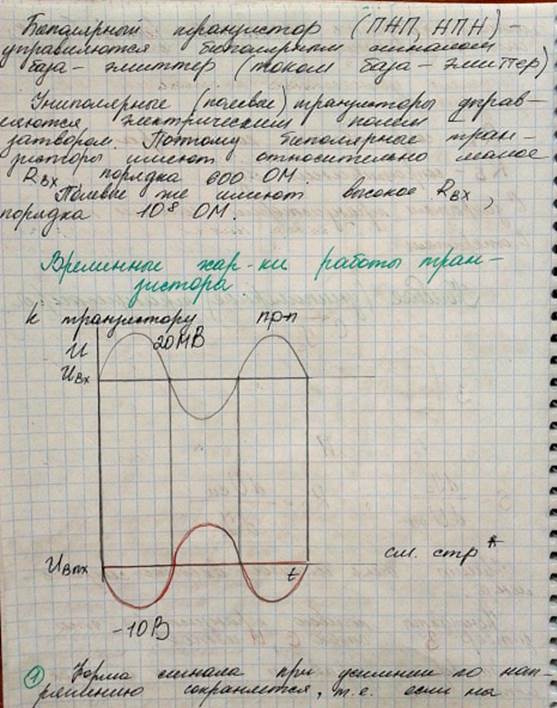 Биполярный транзистор (ПНП, НПН) –
управляются биполярным сигналом
база – эмиттер (током база – эмиттер)
Униполярные (полевые) транзисторы управ-
ляются электрическим полем
затвором. Поэтому биполярные тран-
зисторы имеют относительно малое
Rвх порядка 600 ОМ.
Полевые же имеют высокое Rвх,
порядка 10⁸ ОМ.
Временные хар-ки работы тран-
зистора
к транзистору прп
U 20МВ
Uвх
см. стр*
Uвпх t
-10В
① Форма сигнала при усилении по нап-
ряжению сохраняется, т.е. если на